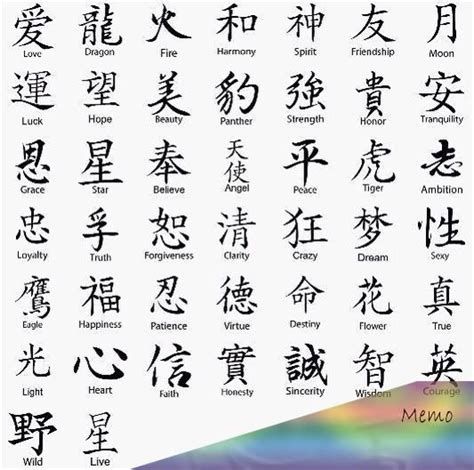 爱 龍 火 和 神 友 月
Love Dragon Fire Harmony Spirit Friendship Moon
運 望 美 豹 強 貴 安
Luck Hope Beauty Panther Strength Honor Tranquility
恩 星 奉 天使 平 虎 志
Grace Star Believe Angel Peace Tiger Ambition
忠 孚 恕 清 狂 梦 性
Loyalty Truth Forgiveness Clarity Crazy Dream Sexy
鷹 福 忍 德 命 花 真
Eagle Happiness Patience Virtue Destiny Flower True
光 心 信 實 誠 智 英
Light Heart Faith Honesty Sincerity Wisdom Courage
野 星 Memo
Wild Live